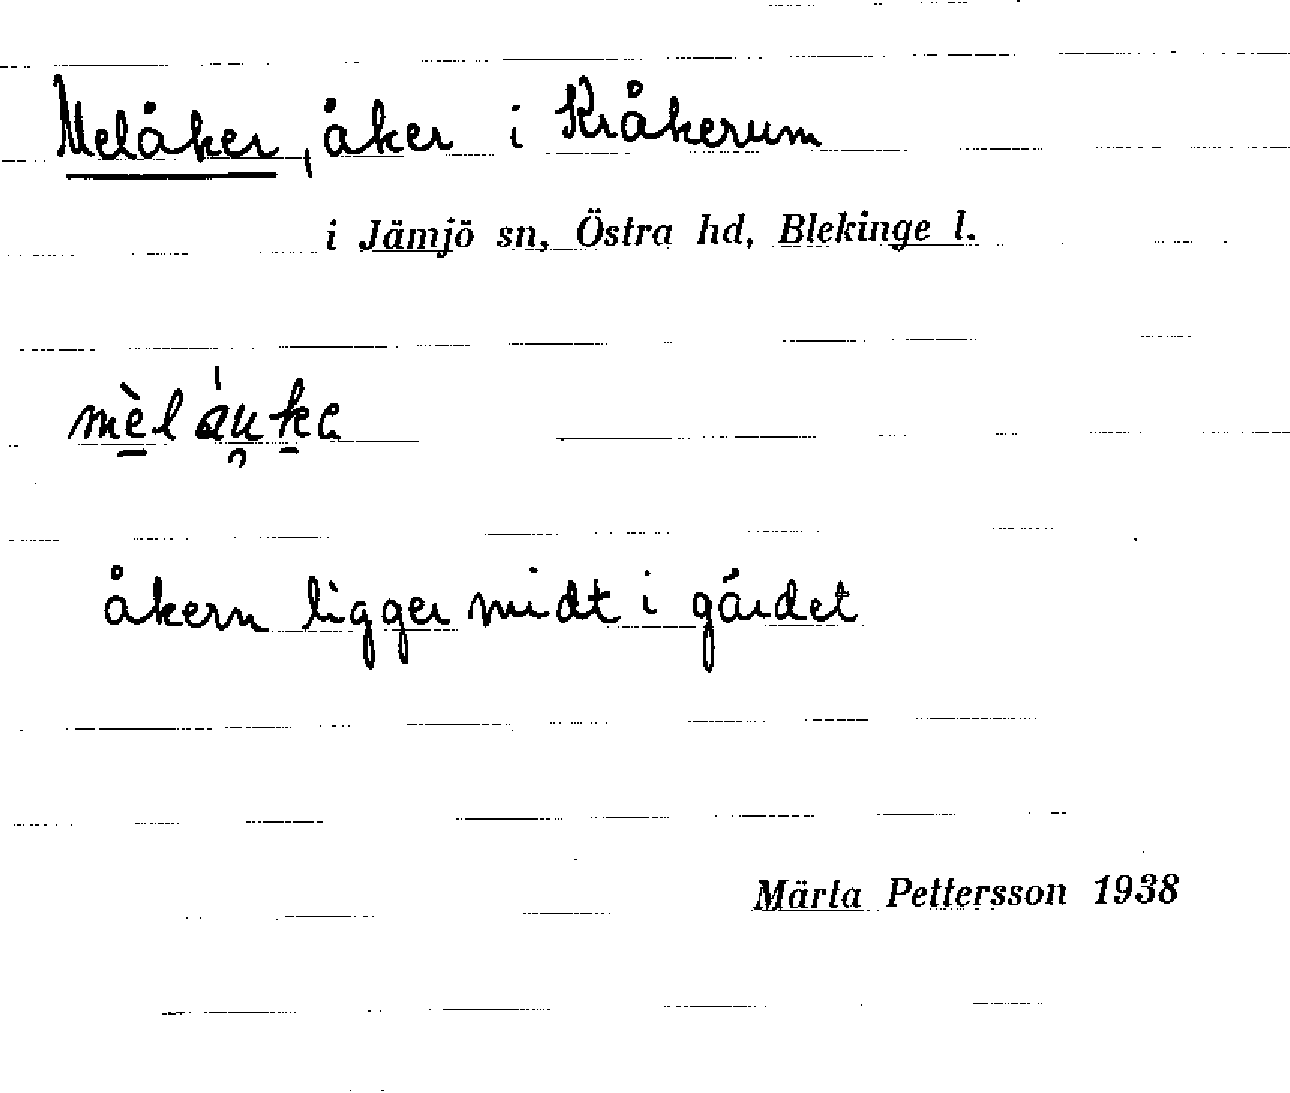 Melåker, åker i Kråkerum
i Jämjö sn, Östra hd, Blekinge l.
åkern ligger midt i gärdet
Märta Pettersson 1938